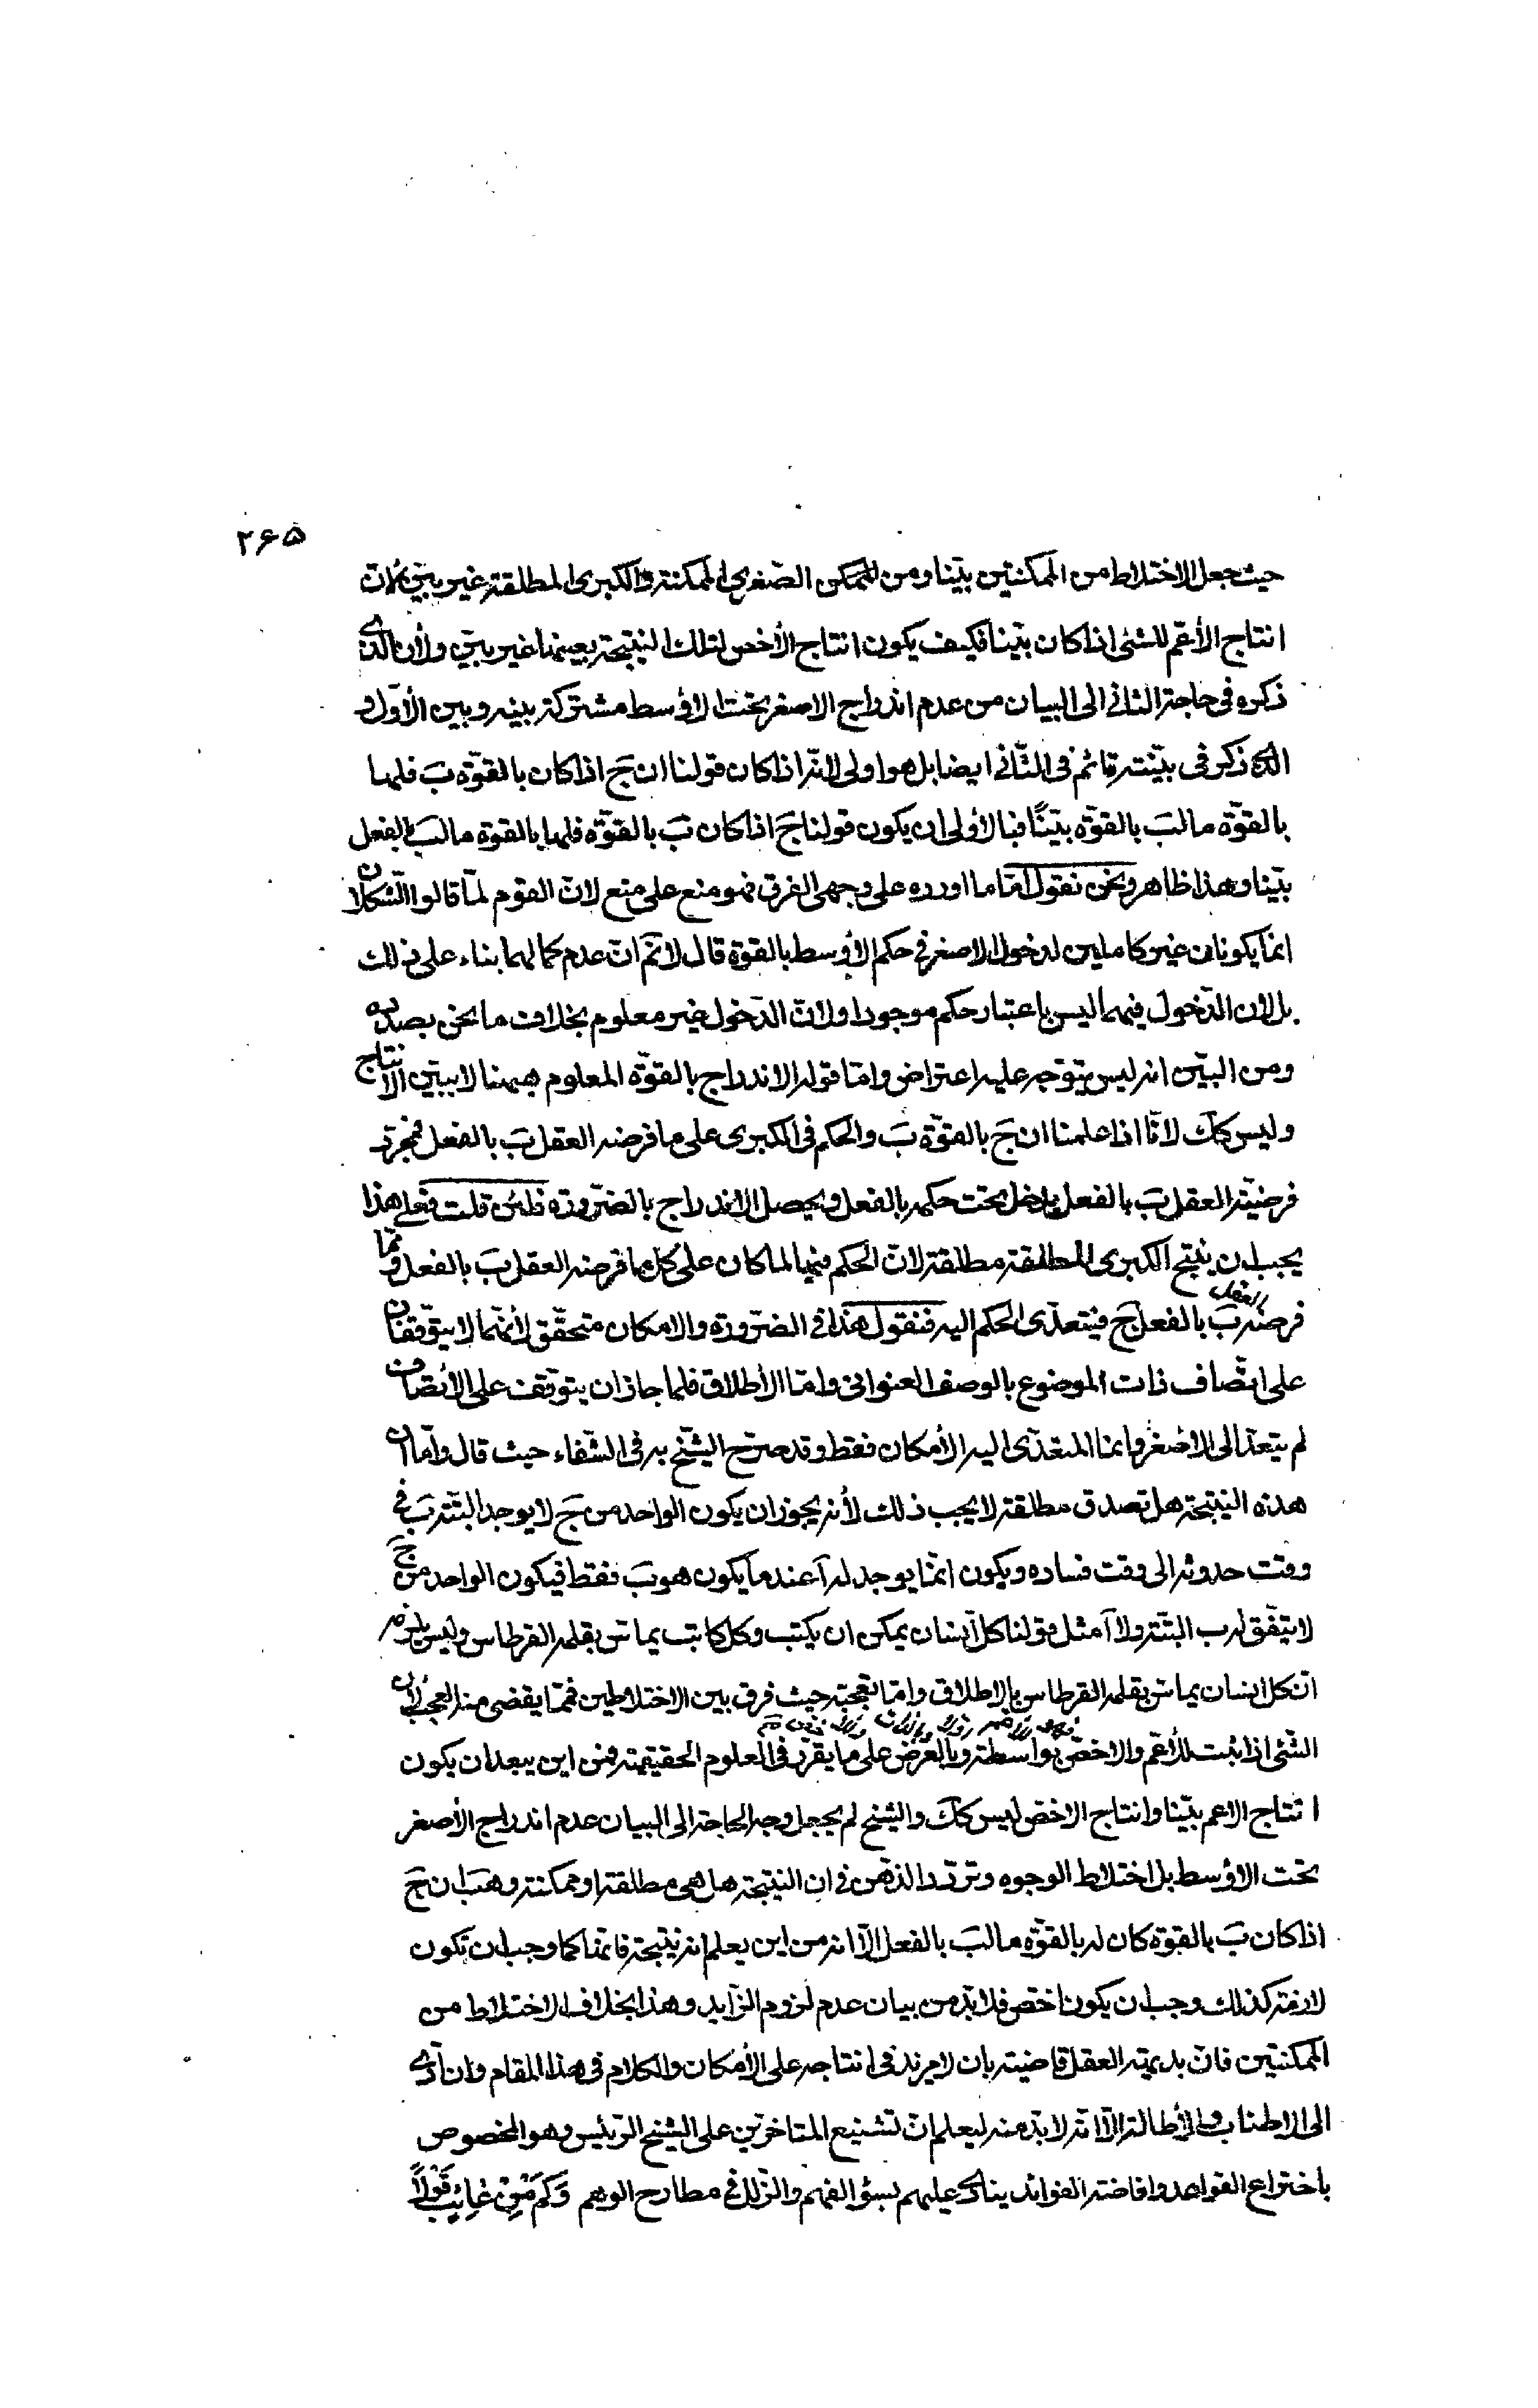 ۲۶۵
حيث جعل الاختلاط من الممكنتين بيّنا ومن الممكن الصّغرى الممكنة والكبرى المطلقة غير بيّن لانّ
انتاج الأعمّ للشئ اذا كان بيّنا فكيف يكون انتاج الأخص لتلك النتيجة بعينها غير بيّن ولأن الّذى
ذكره فى حاجة الثانى الى البيان من عدم اندراج الاصغر تحت الاوسط مشتركة بينه وبين الأوّل و
الّذى ذكر فى بيّنته قائم فى الثّانى ايضا بل هو اولى لانّه اذا كان قولنا ان جَ اذا كان بالقوّة بَ فلها
بالقوّة ما لبَ بالقوّه بيّنًا فبالأولى ان يكون قولنا جَ اذا كان بَ بالقوّه فلها بالقوة ما لبَ بالفعل
بيّنا وهذا ظاهر ونحن نقول امّا ما اورده على وجهى الفرق فهو منع على منع لانّ القوم لمّا قالوا الشّكلان
انما يكونان غير كاملين لدخول الاصغر فى حكم الأوسط بالقوة قال لا نمّ انّ عدم كمالهما بناء على ذلك
بل لان الدّخول فيهما ليس باعتبار حكم موجود اولانّ الدّخول غير معلوم بخلاف ما نحن بصدده
ومن البيّن انه ليس يتوجه عليه اعتراض وامّا قوله الاندراج بالقوّة المعلوم هيهنا لا يبيّن الانتاج
وليس كك لانّا اذا علمنا ان جَ بالقوّة بَ والحكم فى الكبرى على ما فرضه العقل بَ بالفعل فبمجرّد
فرضيّة العقل بَ بالفعل يدخل تحت حكمه بالفعل ويحصل الاندراج بالضّرورة فلئن قلت فعلى هذا
يجب ان ينتج الكبرى المطلقة مطلقة لانّ الحكم فيها لما كان على كل ما فرضه العقل بَ بالفعل وممّا
فرضه العقل بَ بالفعل جَ فيتعدّى الحكم اليه فنقول هذا فى الضّرورة والامكان متحقّق لأنّهما لا يتوقّفان
على اتّصاف ذات الموضوع بالوصف العنوانى وامّا الأطلاق فلما جاز ان يتوقّف على الأتّصاف
لم يتعدّ الى الاصغر وانما المتعدّى اليه الأمكان فقط وقد صرّح الشّيخ به فى الشّفاء حيث قال وامّا ان
هذه النتيجة هل تصدق مطلقة لا يجب ذلك لأنه يجوز ان يكون الواحد من جَ لا يوجد البتّة بَ فى
وقت حدوثه الى وقت فساده ويكون انّما يوجد له آ عند ما يكون هو بَ فقط فيكون الواحد من جَ
لا يتّفق له ب البتّة ولا آ مثل قولنا كل انسان يمكن ان يكتب وكل كاتب يماسّ بقلمه القرطاس وليس يلزم
انّ كل انسان يماسّ بقلمه القرطاس بالاطلاق وامّا تعجبه حيث فرق بين الاختلاطين فممّا يقضى منه العجب لان
الشّئ اذا ثبت للأعمّ والاخصّ بواسطته وبالعرض على ما يقرّر فى العلوم الحقيقية فمن اين يبعد ان يكون
انتاج الاعم بيّنا وانتاج الاخصّ ليس كك والشيخ لم يجعل وجه الحاجة الى البيان عدم اندراج الأصغر
تحت الاوسط بل اختلاط الوجوه وتردّد الذّهن فى ان النتيجة هل هى مطلقة او ممكنة وهب ان جَ
اذا كان بَ بالقوة كان له بالقوّه ما لبَ بالفعل الّا انه من اين يعلم انه نتيجة فانّها كما وجب ان تكون
لازمة كذلك وجب ان يكون اخصّ فلا بدّ من بيان عدم لزوم الزّايد وهذا بخلاف الاختلاط من
الممكنتين فانّ بديهة العقل قاضية بان لا مزيد فى انتاجه على الأمكان والكلام فى هذا المقام وان ادّى
الى الاطناب والأطالة الّا انّه لا بدّ منه ليعلم انّ تشنيع المتأخرّين على الشيخ الرّئيس وهو المخصوص
باختراع القواعد وافاضة الفوائد ينادى عليهم بسوء الفهم والزّلل فى مطارح الوهم وَكَمْ مِنْ غائِبٍ قَوْلًا